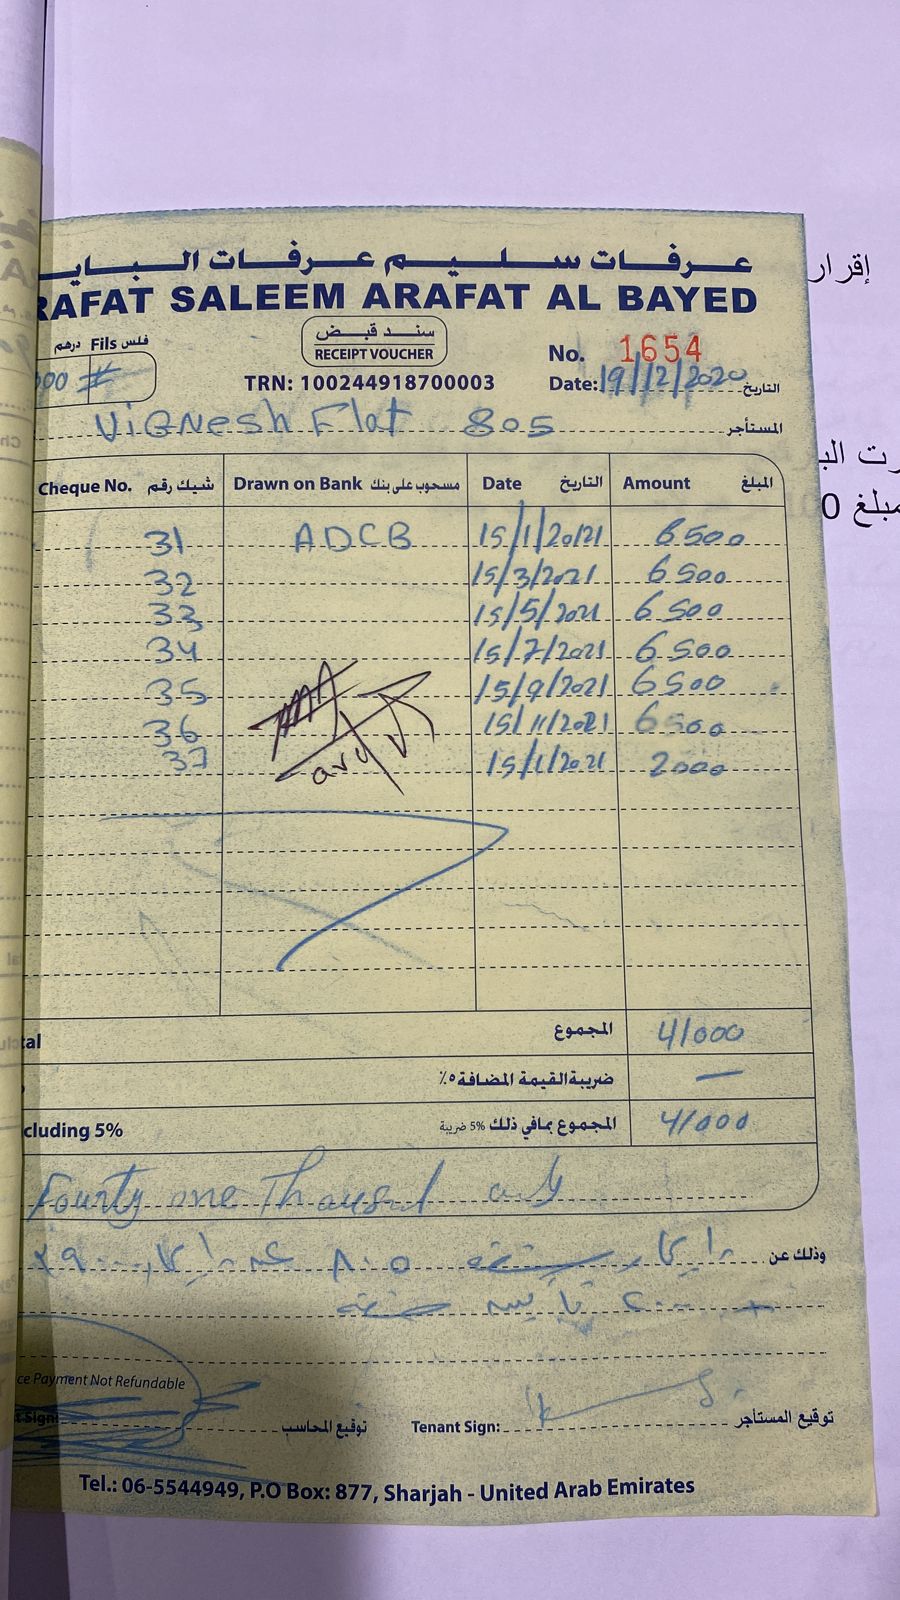 عرفات سليم عرفات البايـ
RAFAT SALEEM ARAFAT AL BAYED
إقرار
درهم Fils فلس
سند قبض
RECEIPT VOUCHER
No. 1654
000 #
TRN: 100244918700003
Date: 19/12/2020 التاريخ
ViGNesh Flat 805 المستأجر
رت البـ
مبلغ 0
Cheque No. شيك رقم Drawn on Bank مسحوب على بنك Date التاريخ Amount المبلغ
31 ADCB 15/1/2021 6500
32 15/3/2021 6500
33 15/5/2021 6500
34 15/7/2021 6500
35 15/9/2021 6500
36 15/11/2021 6500
37 15/1/2021 2000
tal المجموع 41000
ضريبة القيمة المضافة ٥٪ —
cluding 5% المجموع بمافي ذلك 5% ضريبة 41000
Fourty one Thousand only
وذلك عن ٨٠٥
ce Payment Not Refundable
t Sign: توقيع المحاسب Tenant Sign: توقيع المستأجر
Tel.: 06-5544949, P.O Box: 877, Sharjah - United Arab Emirates